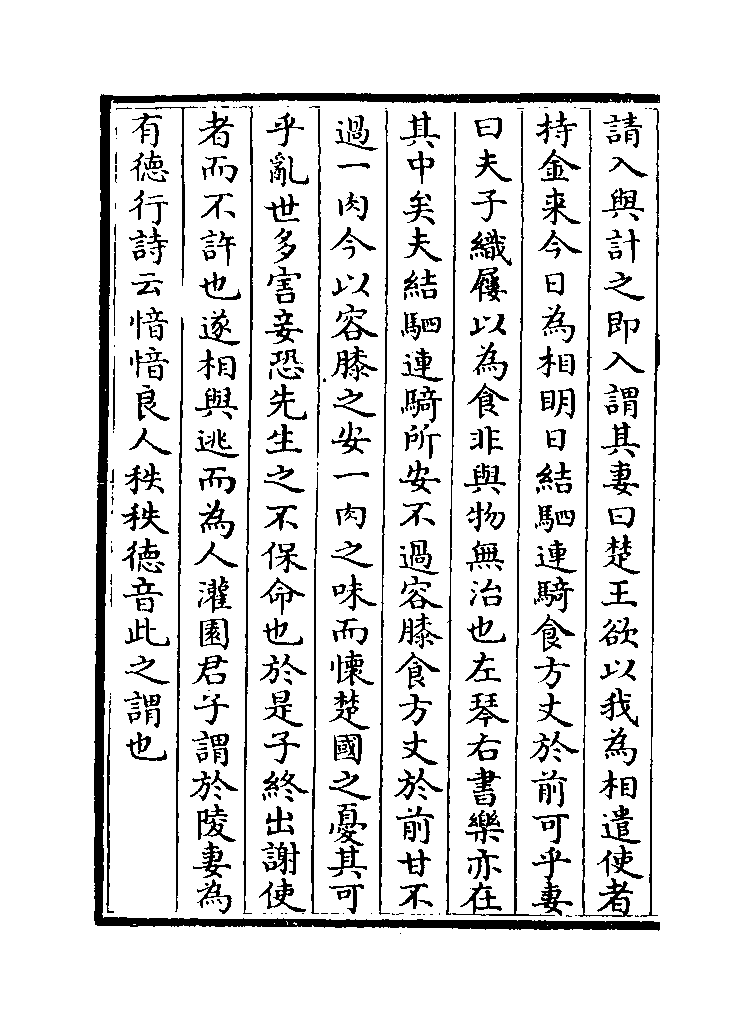 請入與計之即入謂其妻曰楚王欲以我為相遣使者
持金来今日為相明日結駟連騎食方丈於前可乎妻
曰夫子織屨以為食非與物無治也左琴右書樂亦在
其中矣夫結駟連騎所安不過容膝食方丈於前甘不
過一肉今以容膝之安一肉之味而懐楚國之憂其可
乎亂世多害妾恐先生之不保命也於是子終出謝使
者而不許也遂相與逃而為人灌園君子謂於陵妻為
有徳行詩云愔愔良人秩秩徳音此之謂也